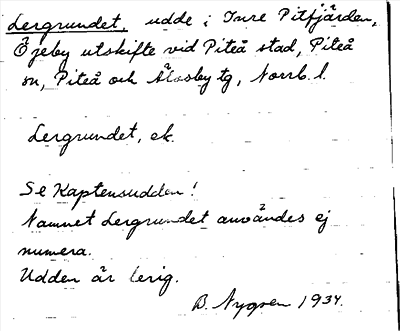 Lergrundet, udde i Inre Pitfjärden,
Öjeby utskifte vid Piteå stad, Piteå
sn, Piteå och Älvsby tg, Norrb. l.
Lergrundet, ek.
Se Kaptensudden!
Namnet Lergrundet användes ej
numera.
Udden är lerig.
B. Nygren 1934.